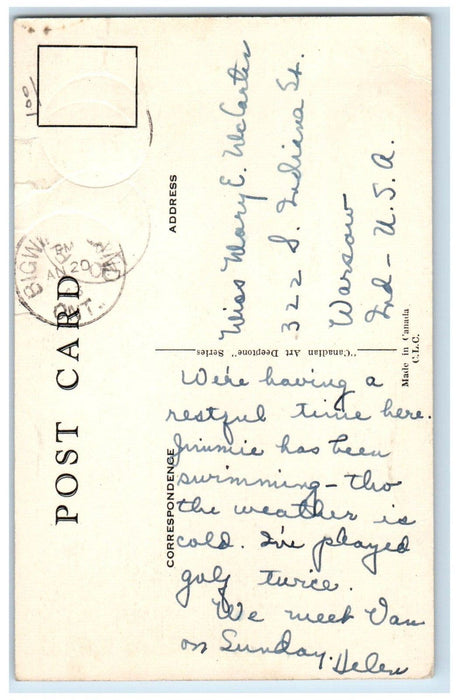 POST CARD
ADDRESS
Miss Mary E. McCarter
322 S. Indiana St.
Warsow
Ind - U.S.A.
"Canadian Art Deeptone" Series
Made in Canada
C.L.C.
CORRESPONDENCE
We're having a
restful time here.
Jimmie has been
swimming - tho
the weather is
cold. I've played
golf twice.
We meet Van
on Sunday. Helen
BIGWIN INN
ONT.